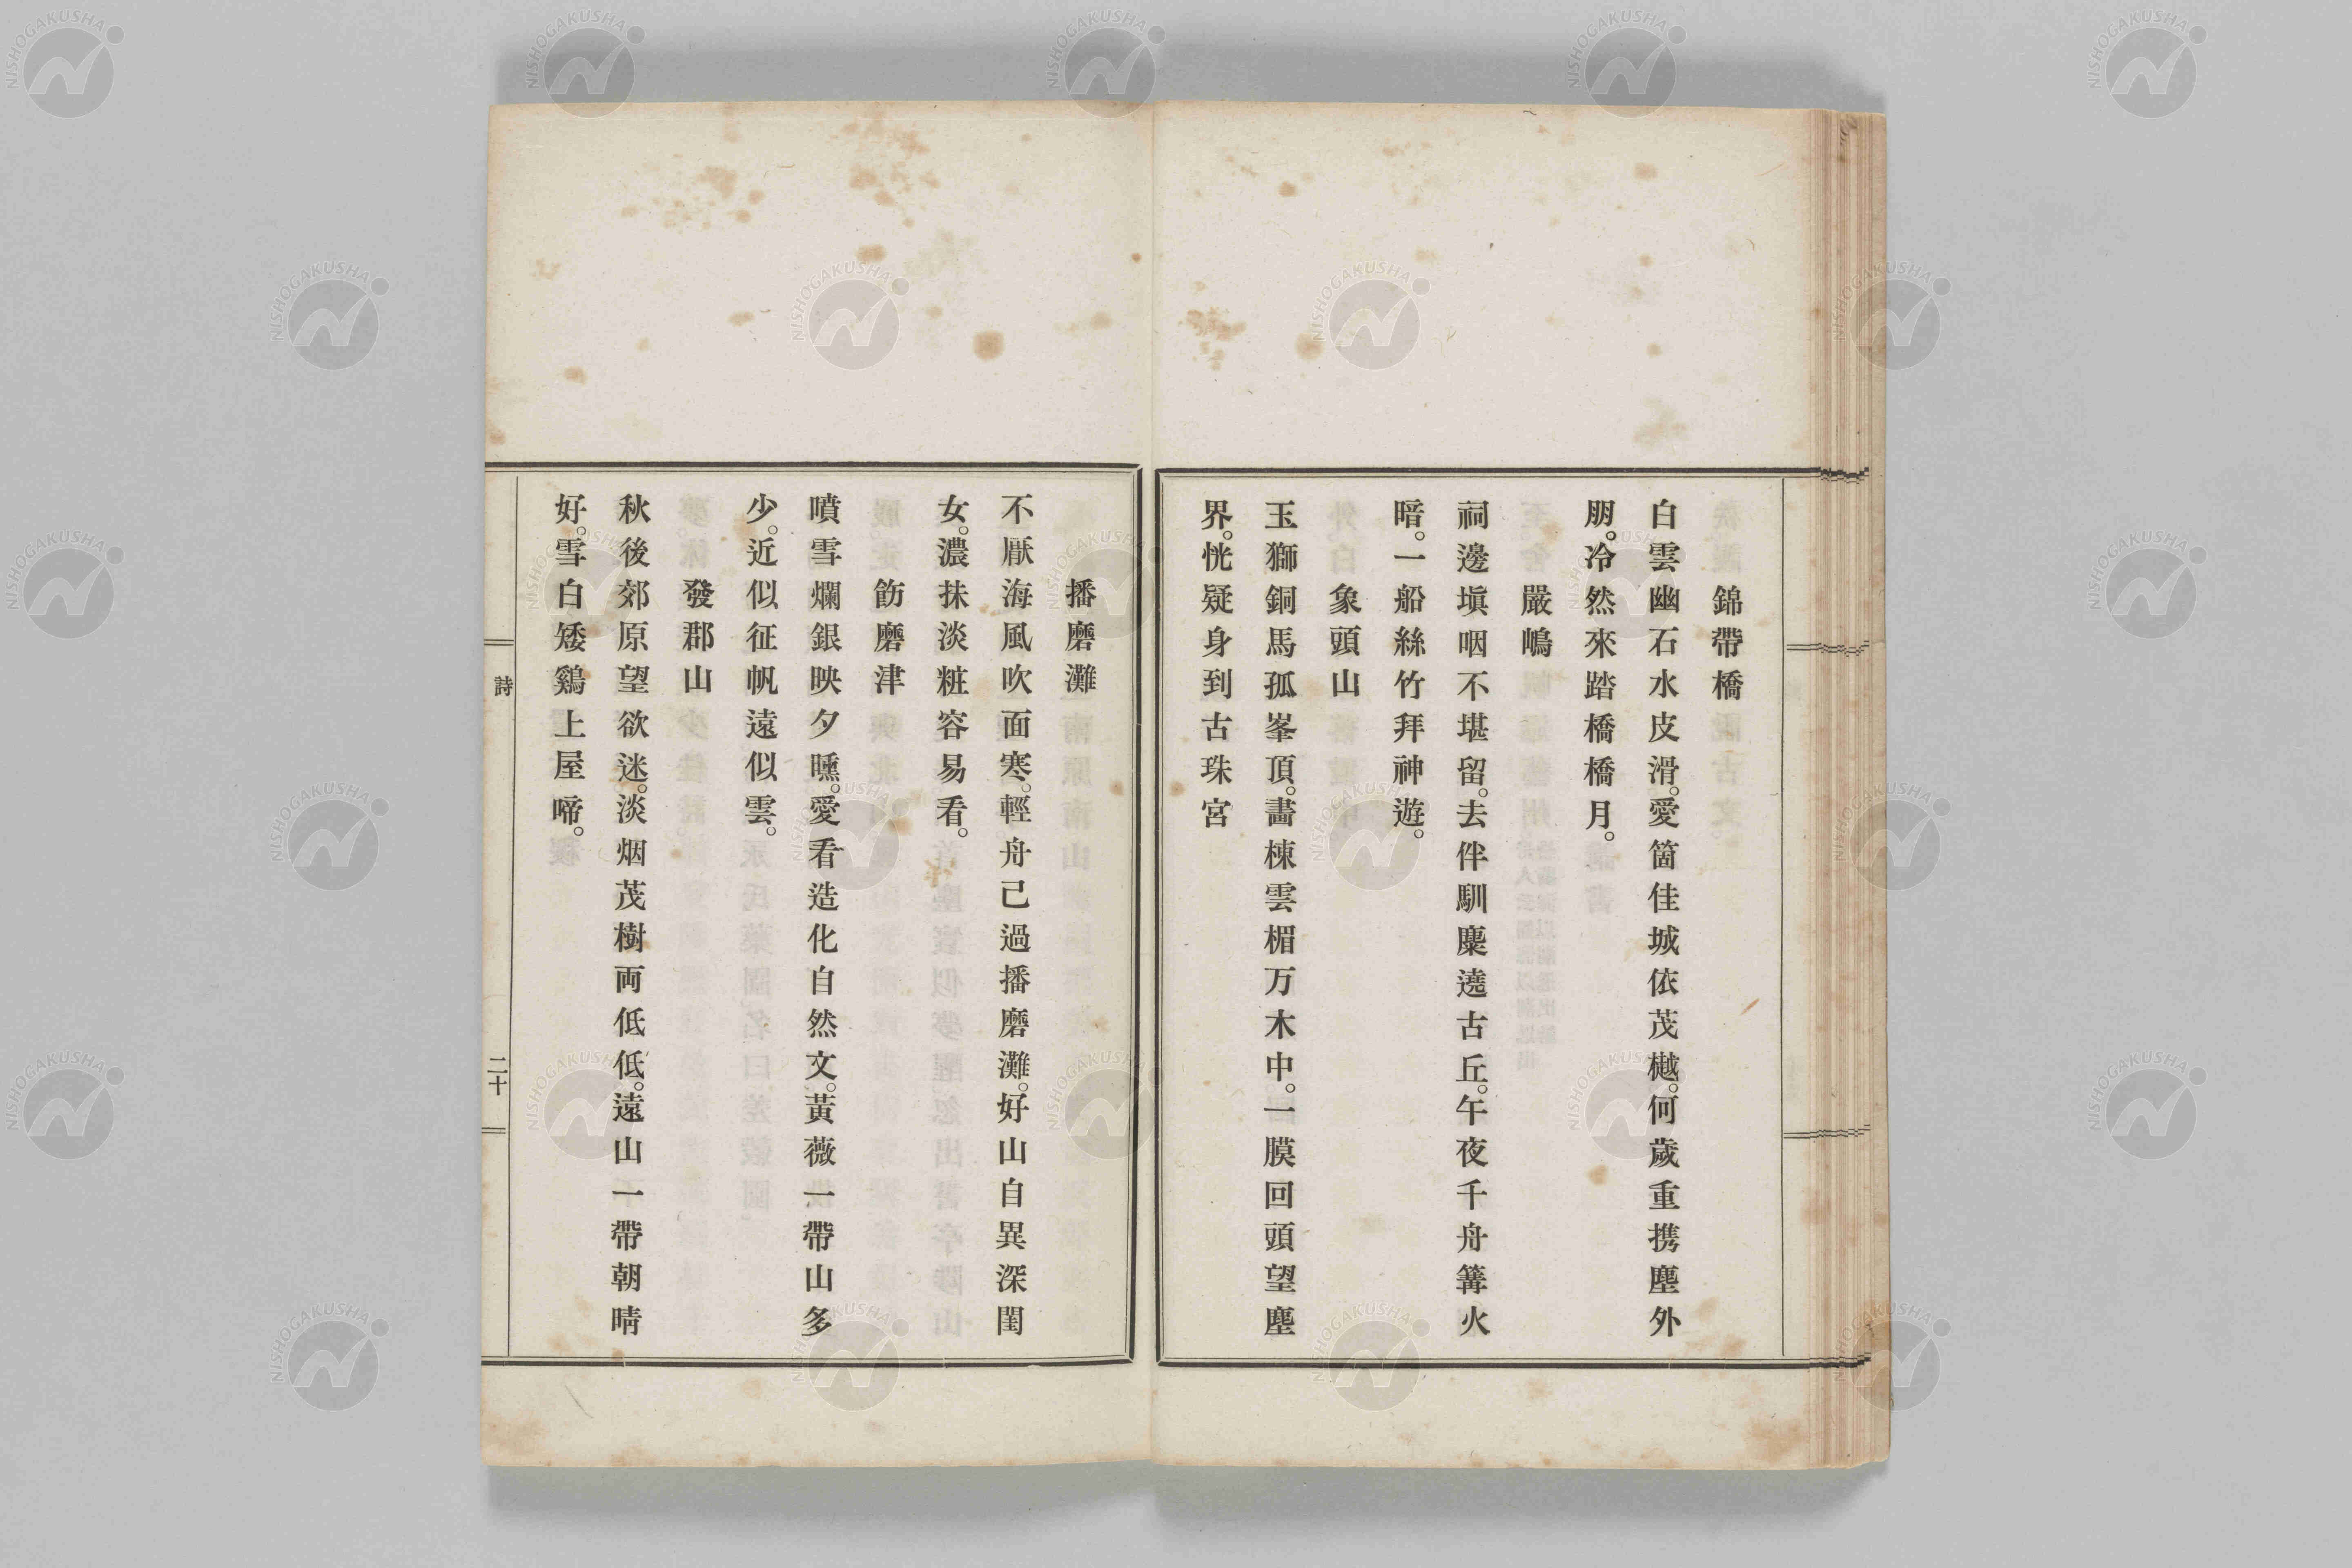 錦帶橋
白雲幽石水皮滑。愛箇佳城依茂樾。何歲重携塵外
朋。冷然來踏橋橋月。
嚴嶋
祠邊塡咽不堪留。去伴馴麋遶古丘。午夜千舟篝火
暗。一船絲竹拜神遊。
象頭山
玉獅銅馬孤峯頂。畫棟雲楣万木中。一膜回頭望塵
界。恍疑身到古珠宮
播磨灘
不厭海風吹面寒。輕舟已過播磨灘。好山自異深閨
女。濃抹淡粧容易看。
飭磨津
噴雪爛銀映夕曛。愛看造化自然文。黃薇一帶山多
少。近似征帆遠似雲。
發郡山
秋後郊原望欲迷。淡烟茂樹両低低。遠山一帶朝晴
好。雪白矮鷄上屋啼。
詩
二十
NISHOGAKUSHA